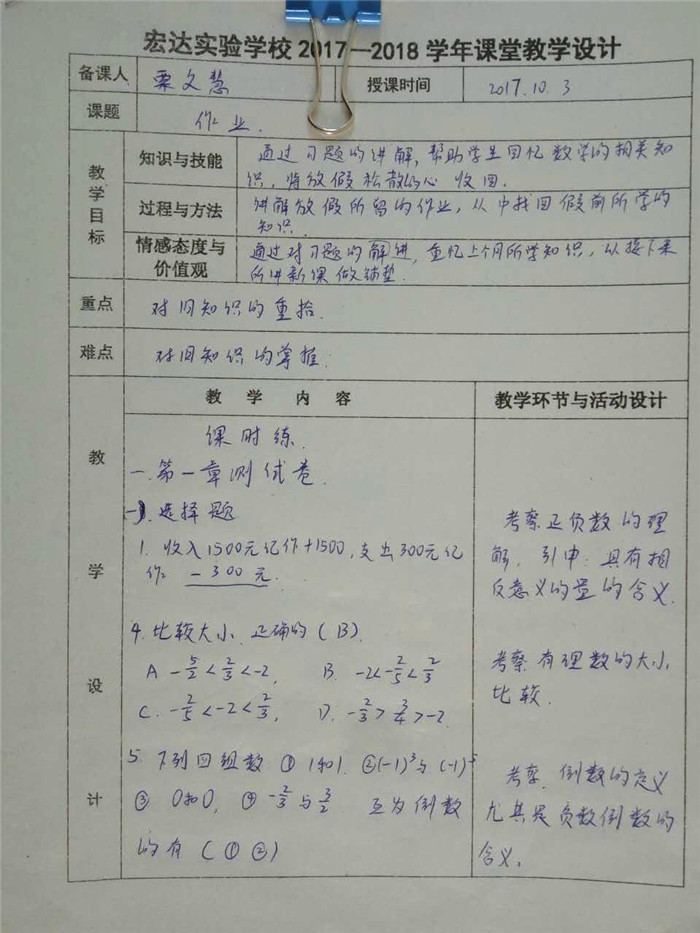 宏达实验学校2017—2018学年课堂教学设计
备课人 栗文慧 授课时间 2017.10.3
课题 作业.
教学目标
知识与技能 通过习题的讲解,帮助学生回忆数学的相关知
识,将放假松散的心收回.
过程与方法 讲解放假所留的作业,从中找回假前所学的
知识.
情感态度与价值观 通过对习题的解进,重忆上个月所学知识,以接下来
所讲新课做铺垫.
重点 对旧知识的重拾.
难点 对旧知识的掌握.
教学设计
教 学 内 容 教学环节与活动设计
课时练.
一.第一章测试卷.
一).选择题
1. 收入1500元记作+1500,支出300元记
作 -300元.
考察正负数的理
解,引申:具有相
反意义的量的含义.
4.比较大小,正确的(B).
A -5/2<2/3<-2, B. -2<-2/5<2/3
C. -2/5<-2<2/3, D. -2/3>3/4>-2.
考察有理数的大小
比较.
5. 下列四组数 ① 1和1. ②(-1)³与(-1)⁵
③ 0和0, ④ -2/3与3/2 互为倒数
的有(①②)
考察.倒数的定义
尤其是负数倒数的
含义.